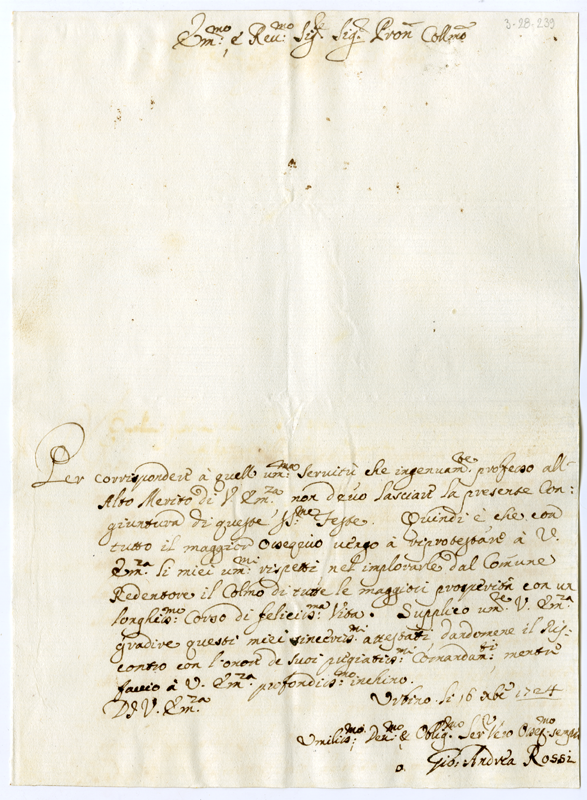 3-28-239
Em:mo e Rev:mo Sig:r Sig:r Pron Collmo
Per corrispondere à quell' um:ma servitù che ingenuam:te professo all'
Alto Merito di V. Em:za non devo lasciare la presente Con-
giuntura di queste SS:me Feste. Quindi è che con
tutto il maggior Ossequio vengo à riprotestare à V.
Em:za li miei um:mi rispetti nel implorarle dal Comune
Redentore il Colmo di tutte le maggiori prosperità con un
longhis:mo Corso di felicis:ma Vita. Supplico um:te V. Em:za
gradire questi miei sinceris:mi attestati dandomene il Ris-
contro con l'onore de suoi pregiatis:mi Comandam:ti mentre
faccio à V. Em:za profondis:mo inchino.
Di V. Em:za
Urbino li 16 Xbre 1724
Umilis:mo Dev:mo & Oblig:mo Ser:v Osseq:mo
Gio: Andrea Rossi